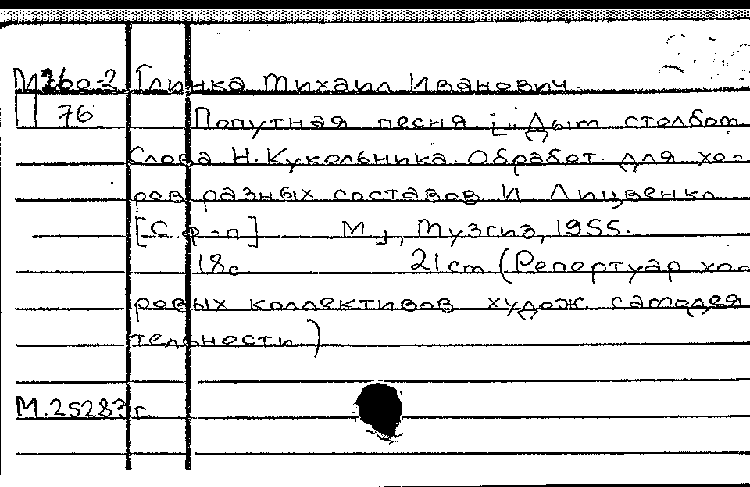 М760-2 Глинка Михаил Иванович
П 76 Попутная песня i „Дым столбом
Слова Н. Кукольника. Обработ для хо-
ров разных составов И Лицвенко
[С ф-п] М., Музгиз, 1955.
18с 21cm (Репертуар хо-
ровых коллективов худож. самодея
тельности)
М.25287г